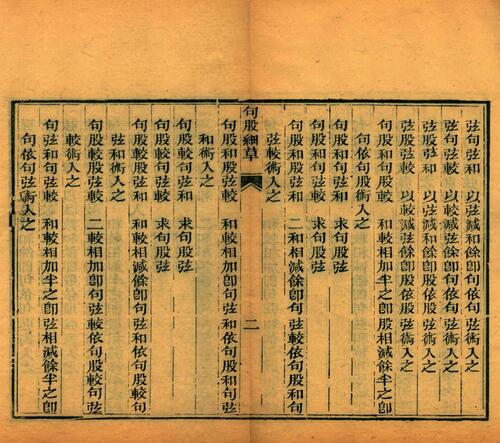 弦句弦和　以弦減和餘卽句依句弦術入之
弦句弦較　以較減弦餘卽句依句弦術入之
弦股弦和　以弦減和餘卽股依股弦術入之
弦股弦較　以較減弦餘卽股依股弦術入之
句股和句股較　和較相加半之卽股相減餘半之卽
句依句股術入之
句股和句弦和　求句股弦
句股和句弦較　求句股弦
句股和股弦和　二和相減餘卽句弦較依句股和句
弦較術入之
句股細草　二
句股和股弦較　和較相加卽句弦和依句股和句弦
和術入之
句股較句弦和　求句股弦
句股較句弦較　求句股弦
句股較股弦和　和較相減餘卽句弦和依句股較句
弦和術入之
句股較股弦較　二較相加卽句弦較依句股較句弦
較術入之
句弦和句弦較　和較相加半之卽弦相減餘半之卽
句依句弦術入之